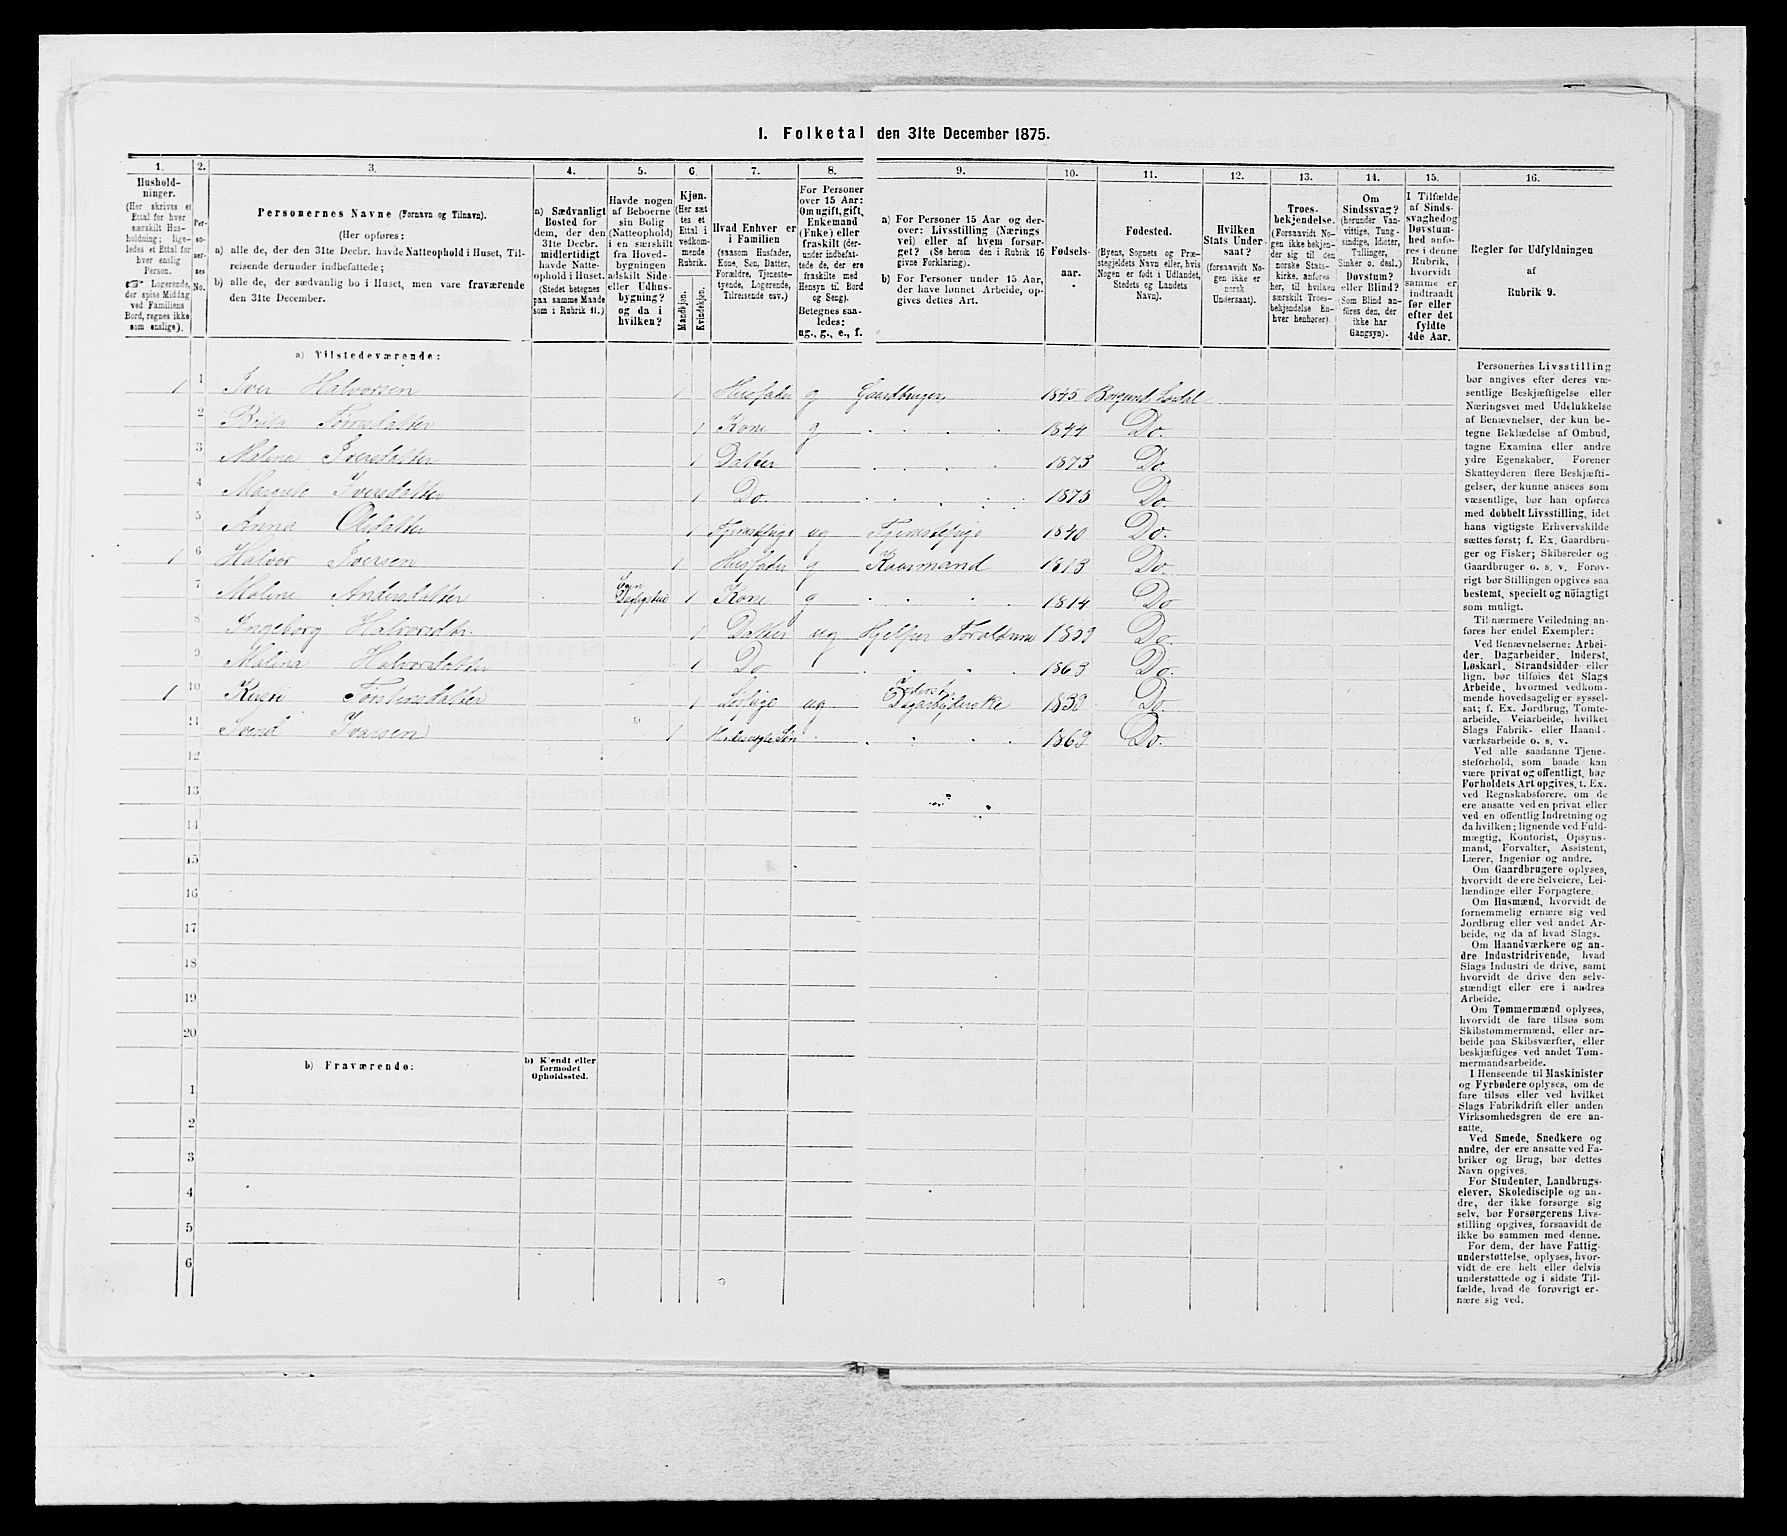 1. Folketal den 31te December 1875.
1. 2. 3. 4. 5. 6. 7. 8. 9. 10. 11. 12. 13. 14. 15. 16.
Hushold-
ninger.
(Her skrives et
Ettal for hver
særskilt Hus-
holdning; lige-
ledes et Ettal for
hver enslig
Person.
☞ Logerende,
der spise Middag
ved Familiens
Bord, regnes ikke
som enslige).
Per-
so-
ner-
nes
No.
Personernes Navne (Fornavn og Tilnavn).
(Her opføres:
a) alle de, der den 31te Decbr. havde Natteophold i Huset, Til-
reisende derunder indbefattede;
b) alle de, der sædvanlig bo i Huset, men vare fraværende
den 31te December.
a) Sædvanligt
Bosted for
dem, der den
31te Decbr.
midlertidigt
havde Natte-
ophold i Huset.
(Stedet betegnes
paa samme Maade
som i Rubrik 11.)
Havde nogen
af Beboerne
sin Bolig
(Natteophold)
i en særskilt
fra Hoved-
bygningen
adskilt Side-
eller Udhus-
bygning?
og da i
hvilken?
Kjøn.
(Her sæt-
tes et
Ettal i
vedkom-
mende
Rubrik.
Mandkjøn.
Kvindekjøn.
Hvad Enhver er
i Familien
(saasom Husfader,
Kone, Søn, Datter,
Forældre, Tjeneste-
tyende, Logerende,
Tilreisende osv.)
For Personer
over 15 Aar:
Om ugift, gift,
Enkemand
(Enke) eller
fraskilt (der-
under indbefat-
tede de, der ere
fraskilte med
Hensyn til Bord
og Seng).
Betegnes saa-
ledes:
ug., g., e., f.
a) For Personer 15 Aar og der-
over: Livsstilling (Nærings-
vei) eller af hvem forsør-
get? (Se herom den i Rubrik 16
givne Forklaring).
b) For Personer under 15 Aar,
der have lønnet Arbeide, op-
gives dettes Art.
Fødsels-
aar.
Fødested.
(Byens, Sognets og Præ-
stegjeldets Navn eller, hvis
Nogen er født i Udlandet,
Stedets og Landets
Navn).
Hvilken
Stats Under-
saat?
(forsaavidt No-
gen ikke er
norsk
Undersaat).
Troes-
bekjendelse.
(Forsaavidt No-
gen ikke bekjen-
der sig til den
norske Stats-
kirke, anføres
her, til hvilken
særskilt Troes-
bekjendelse En-
hver henhører).
Om
Sindssvag?
(herunder Van-
vittige, Tung-
sindige, Idioter,
Tullinger,
Sinker o. desl.)
Døvstum?
eller Blind?
(Som Blind an-
føres den, der
ikke har
Gangsyn).
I Tilfælde
af Sinds-
svaghed og
Døvstum-
hed anfø-
res i denne
Rubrik,
hvorvidt
samme er
indtraadt
før eller
efter det
fyldte
4de Aar.
Regler for Udfyldningen
af
Rubrik 9.
a) Tilstedeværende:
1 1 Iver Halvorsen 1 Husfader g Gaardbruger 1845 Borgund Lærdal
2 Brita 1 Kone g 1844 Do.
3 Malina Iversdatter 1 Datter 1873 Do.
4 Margrete Iversdatter 1 Do. 1875 Do.
5 Anna Olsdatter 1 ug 1840 Do.
1 6 Halvor Iversen 1 Husfader g Kaarmand 1813 Do.
7 Maline Andersdatter 1 Kone g 1814 Do
8 Ingeborg 1 Datter ug Hjelper 1859 Do.
9 Malina Halvorsdatter 1 Do 1863 Do.
1 10 1 ug 1839 Do.
11 Svend Iversen 1 1869 Do.
12
13
14
15
16
17
18
19
20
b) Fraværende:
b) Kjendt eller
formodet
Opholdssted.
1
2
3
4
5
6
Personernes Livsstilling
bør angives efter deres væ-
sentlige Beskjæftigelse eller
Næringsvei med Udelukkelse
af Benævnelser, der kun be-
tegne Beklædelse af Ombud,
tagne Examina eller andre
ydre Egenskaber. Forener
Skatteyderen flere Beskjæfti-
gelser, der kunne ansees som
væsentlige, bør han opføres
med dobbelt Livsstilling, idet
hans vigtigste Erhvervskilde
sættes først; f. Ex. Gaardbru-
ger og Fisker; Skibsreder og
Gaardbruger o. s. v. Forøv-
rigt bør Stillingen opgives saa
bestemt, specielt og nöiagtigt
som muligt.
Til nærmere Veiledning an-
føres her endel Exempler:
Ved Benævnelserne: Arbei-
der, Dagarbeider, Inderst,
Løskarl, Strandsidder eller
lign. bør tilføies det Slags
Arbeide, hvormed vedkom-
mende hovedsagelig er syssel-
sat; f. Ex. Jordbrug, Tomte-
arbeide, Veiarbeide, hvilket
Slags Fabrik- eller Haand-
værksarbeide o. s. v.
Ved alle saadanne Tjene-
steforhold, som baade kan
være privat og offentligt, bør
Forholdets Art opgives, t. Ex.
ved Regnskabsførere, om de
ere ansatte ved en privat eller
ved en offentlig Indretning og
da hvilken; lignende ved Fuld-
mægtig, Kontorist, Opsyns-
mand, Forvalter, Assistent,
Lærer, Ingeniør og andre.
Om Gaardbrugere oplyses,
hvorvidt de ere Selveiere, Lei-
lændinge eller Forpagtere.
Om Husmænd, hvorvidt de
fornemmelig ernære sig ved
Jordbrug eller ved andet Ar-
beide, og da af hvad Slags.
Om Haandværkere og an-
dre Industridrivende, hvad
Slags Industri de drive, samt
hvorvidt de drive den selv-
stændigt eller ere i andres
Arbeide.
Om Tømmermænd oplyses,
hvorvidt de fare tilsøs som
Skibstømmermænd, eller ar-
beide paa Skibsværfter, eller
beskjæftiges ved andet Tøm-
mermandsarbeide.
I Henseende til Maskinister
og Fyrbødere oplyses, om de
fare tilsøs eller ved hvilket
Slags Fabrikdrift eller anden
Virksomhedsgren de ere an-
satte.
Ved Smede, Snedkere og
andre, der ere ansatte ved Fa-
briker og Brug, bør dettes
Navn opgives.
For Studenter, Landbrugs-
elever, Skoledisciple og an-
dre, der ikke forsørge sig
selv, bør Forsørgerens Livs-
stilling opgives, forsaavidt de
ikke bo sammen med denne.
For dem, der have Fattig-
understøttelse, oplyses, hvor-
vidt de ere helt eller delvis
understøttede og i sidste Til-
fælde, hvad de forøvrigt er-
nære sig ved.